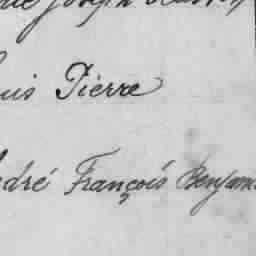 Joseph
uis Pierre
dré François Benjam